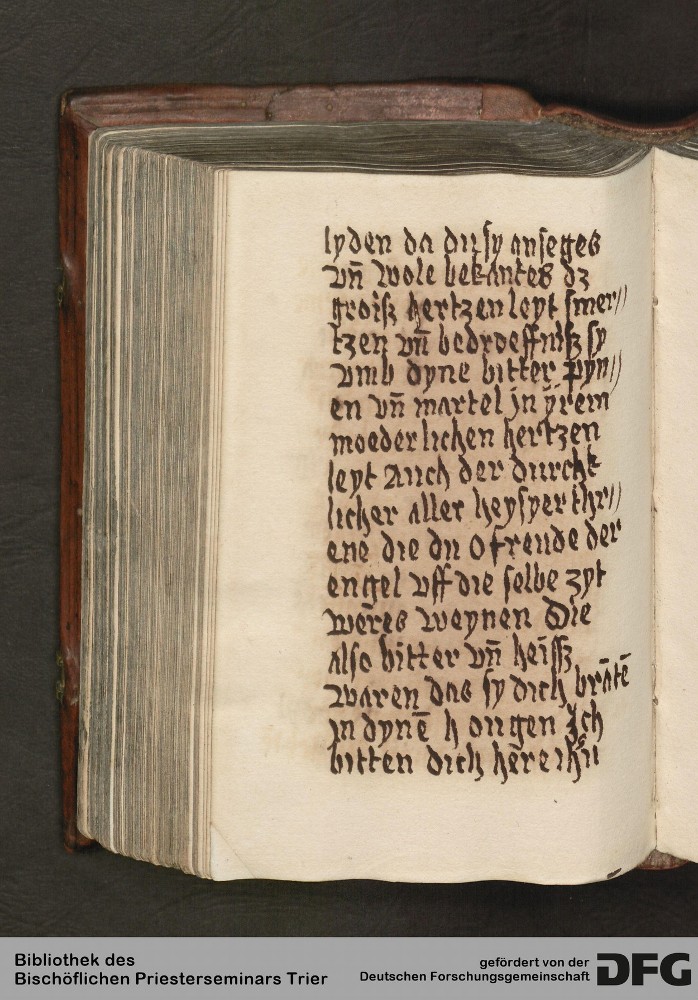 lyden da du sy anseges
vn̄ wole bekantes dz
groiſz hertzen leyt smer//
tzen vn̄ bedroeffniſz sy
vmb dyne bitter pyn//
en vn̄ martel jn yrem
moederlichen hertzen
leyt Auch der durch
licher aller heysyer thr//
ene die du O freude der
engel vff die selbe zyt
wēres weynen Die
also bitter vn̄ heiſſz
waren das sy dich brātē
jn dynē h ougen Ich
bitten dich hēre ihū
Bibliothek des
Bischöflichen Priesterseminars Trier
gefördert von der
Deutschen Forschungsgemeinschaft DFG